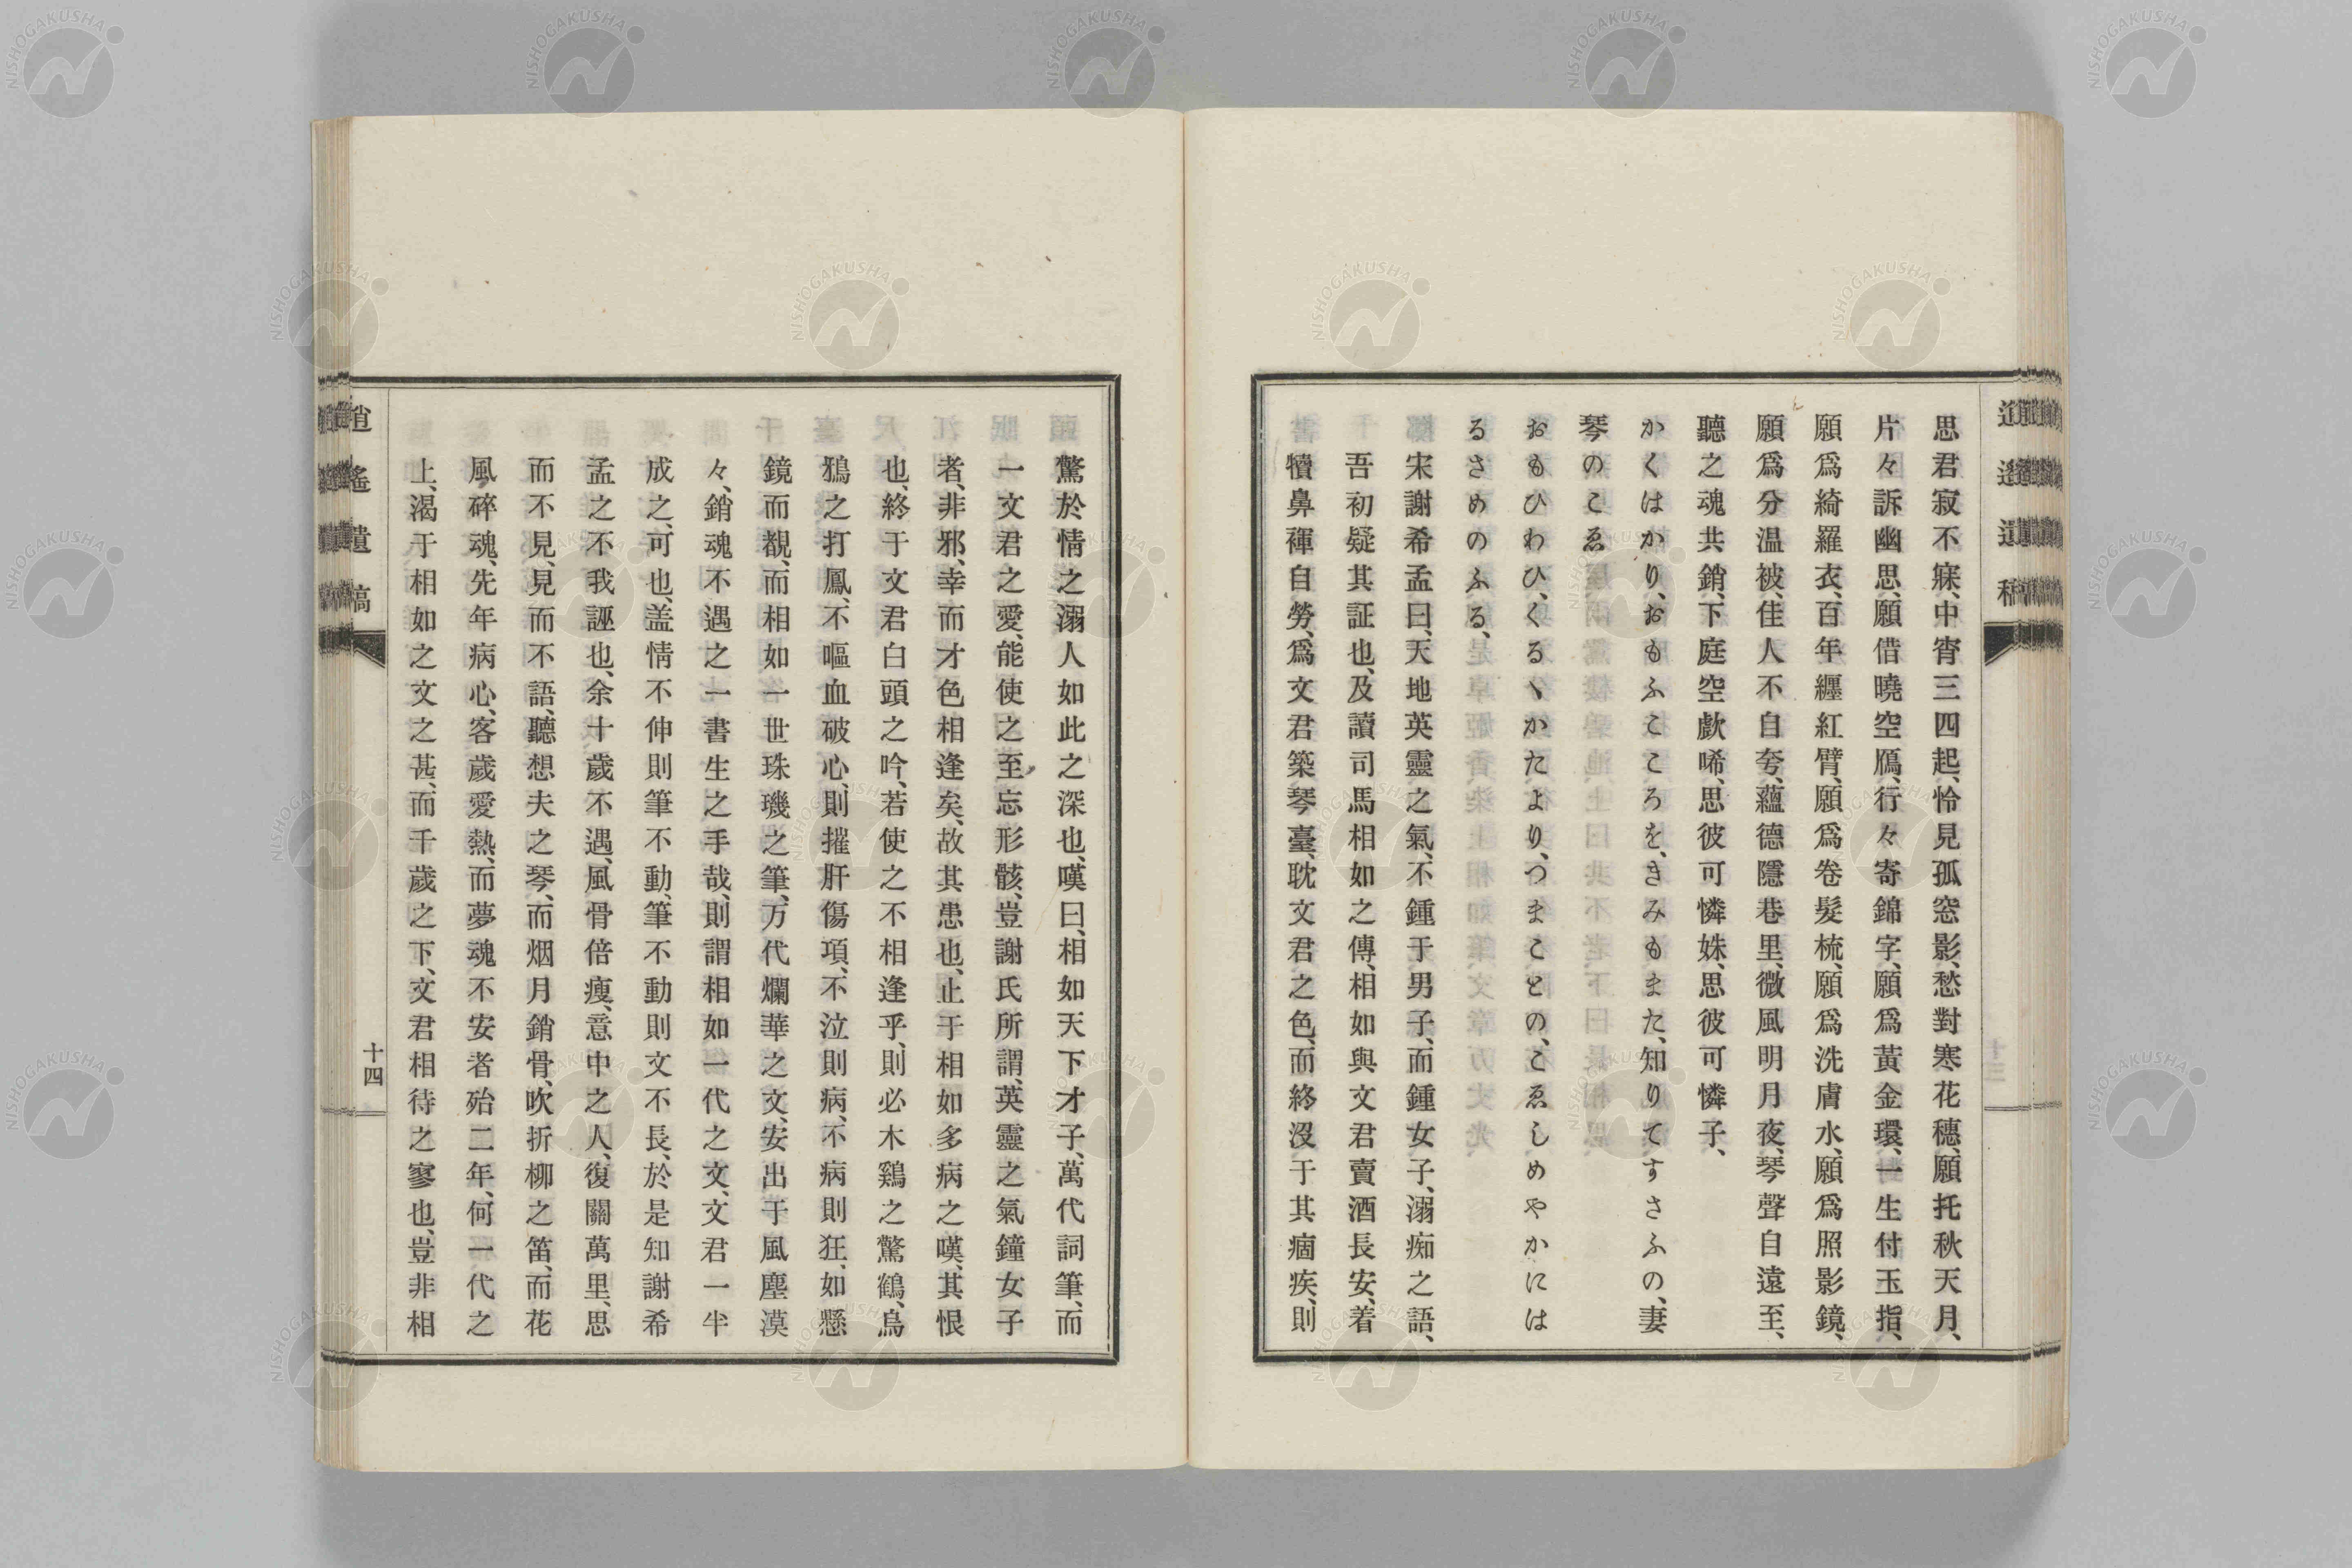 逍遙遺稿
思君寂不寐、中宵三四起、怜見孤窓影、愁對寒花穗、願托秋天月、
片々訴幽思、願借曉空鴈、行々寄錦字、願爲黃金環、一生付玉指、
願爲綺羅衣、百年纒紅臂、願爲卷髮梳、願爲洗膚水、願爲照影鏡、
願爲分温被、佳人不自夸、蘊德隱巷里、微風明月夜、琴聲自遠至、
聽之魂共銷、下庭空歔唏、思彼可憐姝、思彼可憐子、
かくはかり、おもふこころを、きみもまた、知りてすさふの、妻
琴のこゑ
おもひわひ、くるゝかたより、つまことの、こゑしめやかには
るさめのふる、
宋謝希孟曰、天地英靈之氣、不鍾于男子、而鍾女子、溺痴之語、
吾初疑其証也、及讀司馬相如之傳、相如與文君賣酒長安、着
犢鼻褌自勞、爲文君築琴臺、耽文君之色、而終沒于其痼疾、則
驚於情之溺人如此之深也、嘆曰、相如天下才子、萬代詞筆、而
一文君之愛、能使之至忘形骸、豈謝氏所謂、英靈之氣鐘女子
者、非邪、幸而才色相逢矣、故其患也、止于相如多病之嘆、其恨
也、終于文君白頭之吟、若使之不相逢乎、則必木鷄之驚鶴、烏
鴉之打鳳、不嘔血破心、則摧肝傷項、不泣則病、不病則狂、如懸
鏡而覩、而相如一世珠璣之筆、万代爛華之文、安出于風塵漠
々、銷魂不遇之一書生之手哉、則謂相如一代之文、文君一半
成之、可也、盖情不伸則筆不動、筆不動則文不長、於是知謝希
孟之不我誣也、余十歲不遇、風骨倍瘦、意中之人、復關萬里、思
而不見、見而不語、聽想夫之琴、而烟月銷骨、吹折柳之笛、而花
風碎魂、先年病心、客歲愛熱、而夢魂不安者殆二年、何一代之
上、渴于相如之文之甚、而千歲之下、文君相待之寥也、豈非相
逍遙遺稿
十四